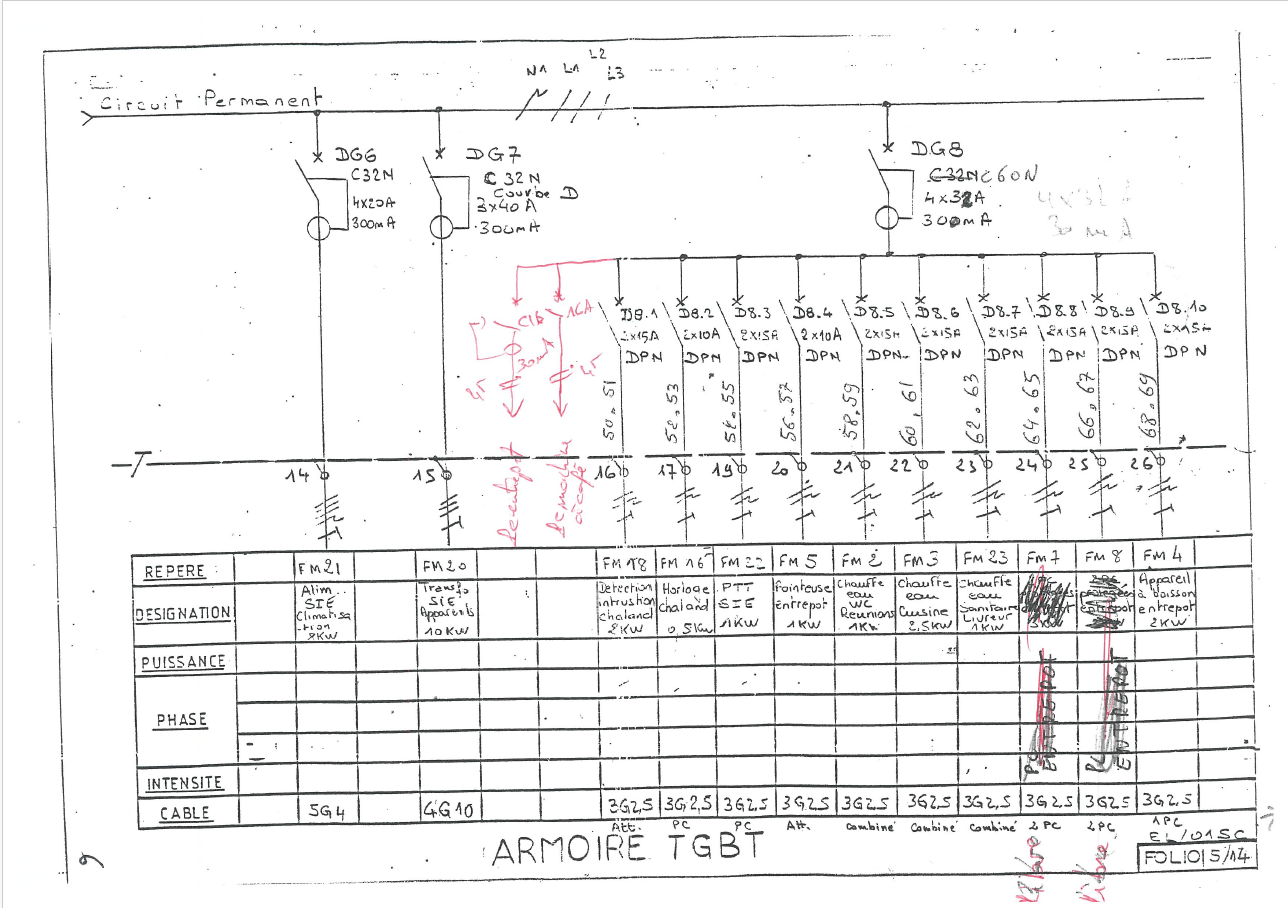 N1 L1 L2 L3
Circuit Permanent
DG6
C32N
4x20A
300mA
DG7
C32N
Courbe D
3x40A
300mA
DG8
C32N C60N
4x32A
300mA
4x32 A
30 mA
16A
30mA
D8.1 D8.2 D8.3 D8.4 D8.5 D8.6 D8.7 D8.8 D8.9 D8.10
2x15A 2x10A 2x15A 2x10A 2x15A 2x15A 2x15A 2x15A 2x15A 2x15A
DPN DPN DPN DPN DPN DPN DPN DPN DPN DPN
50.51 52.53 54.55 56.57 58.59 60.61 62.63 64.65 66.67 68.69
entrepot
machine
à café
14 15 16 17 19 20 21 22 23 24 25 26
REPERE : FM21 FM20 FM18 FM16 FM22 FM5 FM2 FM3 FM23 FM7 FM8 FM4
DESIGNATION
Alim..
SIE
Climatisa
-tion
8KW
Transfo
SIE
Appareils
10KW
Detection
intrustion
chaland
2KW
Horloge
chaland
0,5KW
PTT
SIE
1KW
Pointeuse
entrepot
1KW
Chauffe
eau
WC
Reunions
1KW
Chauffe
eau
Cuisine
2,5KW
Chauffe
eau
Sanitaire
Livreur
1KW
Appareil
à boisson
entrepot
2KW
PUISSANCE
PHASE
PC ENTREPOT
PC ENTREPOT
INTENSITE
CABLE 5G4 4G10 3G2,5 3G2,5 3G2,5 3G2,5 3G2,5 3G2,5 3G2,5 3G2,5 3G2,5 3G2,5
Att. PC PC Att. combiné Combiné combiné 2 PC 2 PC 1PC
Libre Libre
ARMOIRE TGBT
EL/015C
FOLIO 5/14
9